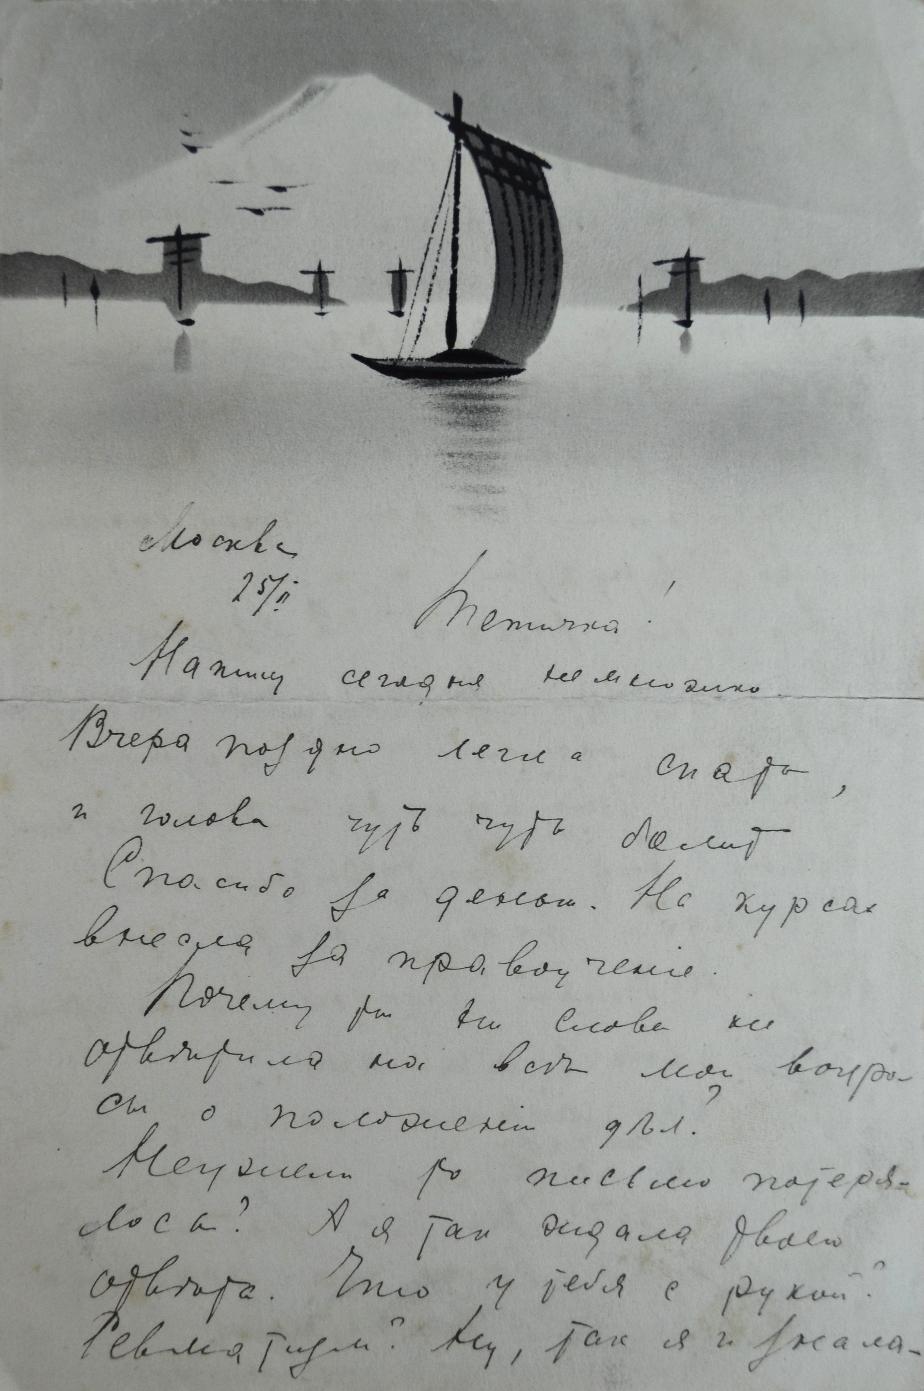 Москва
25/II
Тетичка!
Напишу сегодня немножко.
Вчера поздно легла спать,
и голова чуть чуть болит
Спасибо за деньги. На курсах
внесла за правоучение.
Почему ты ни слова не
отвѣтила на всѣ мои вопро-
сы о положеніи дѣл?
Неужели то письмо потеря-
лось? А я так ждала твоего
отвѣта. Что у тебя с рукой?
Ревматизм? Ну, так я и знала-